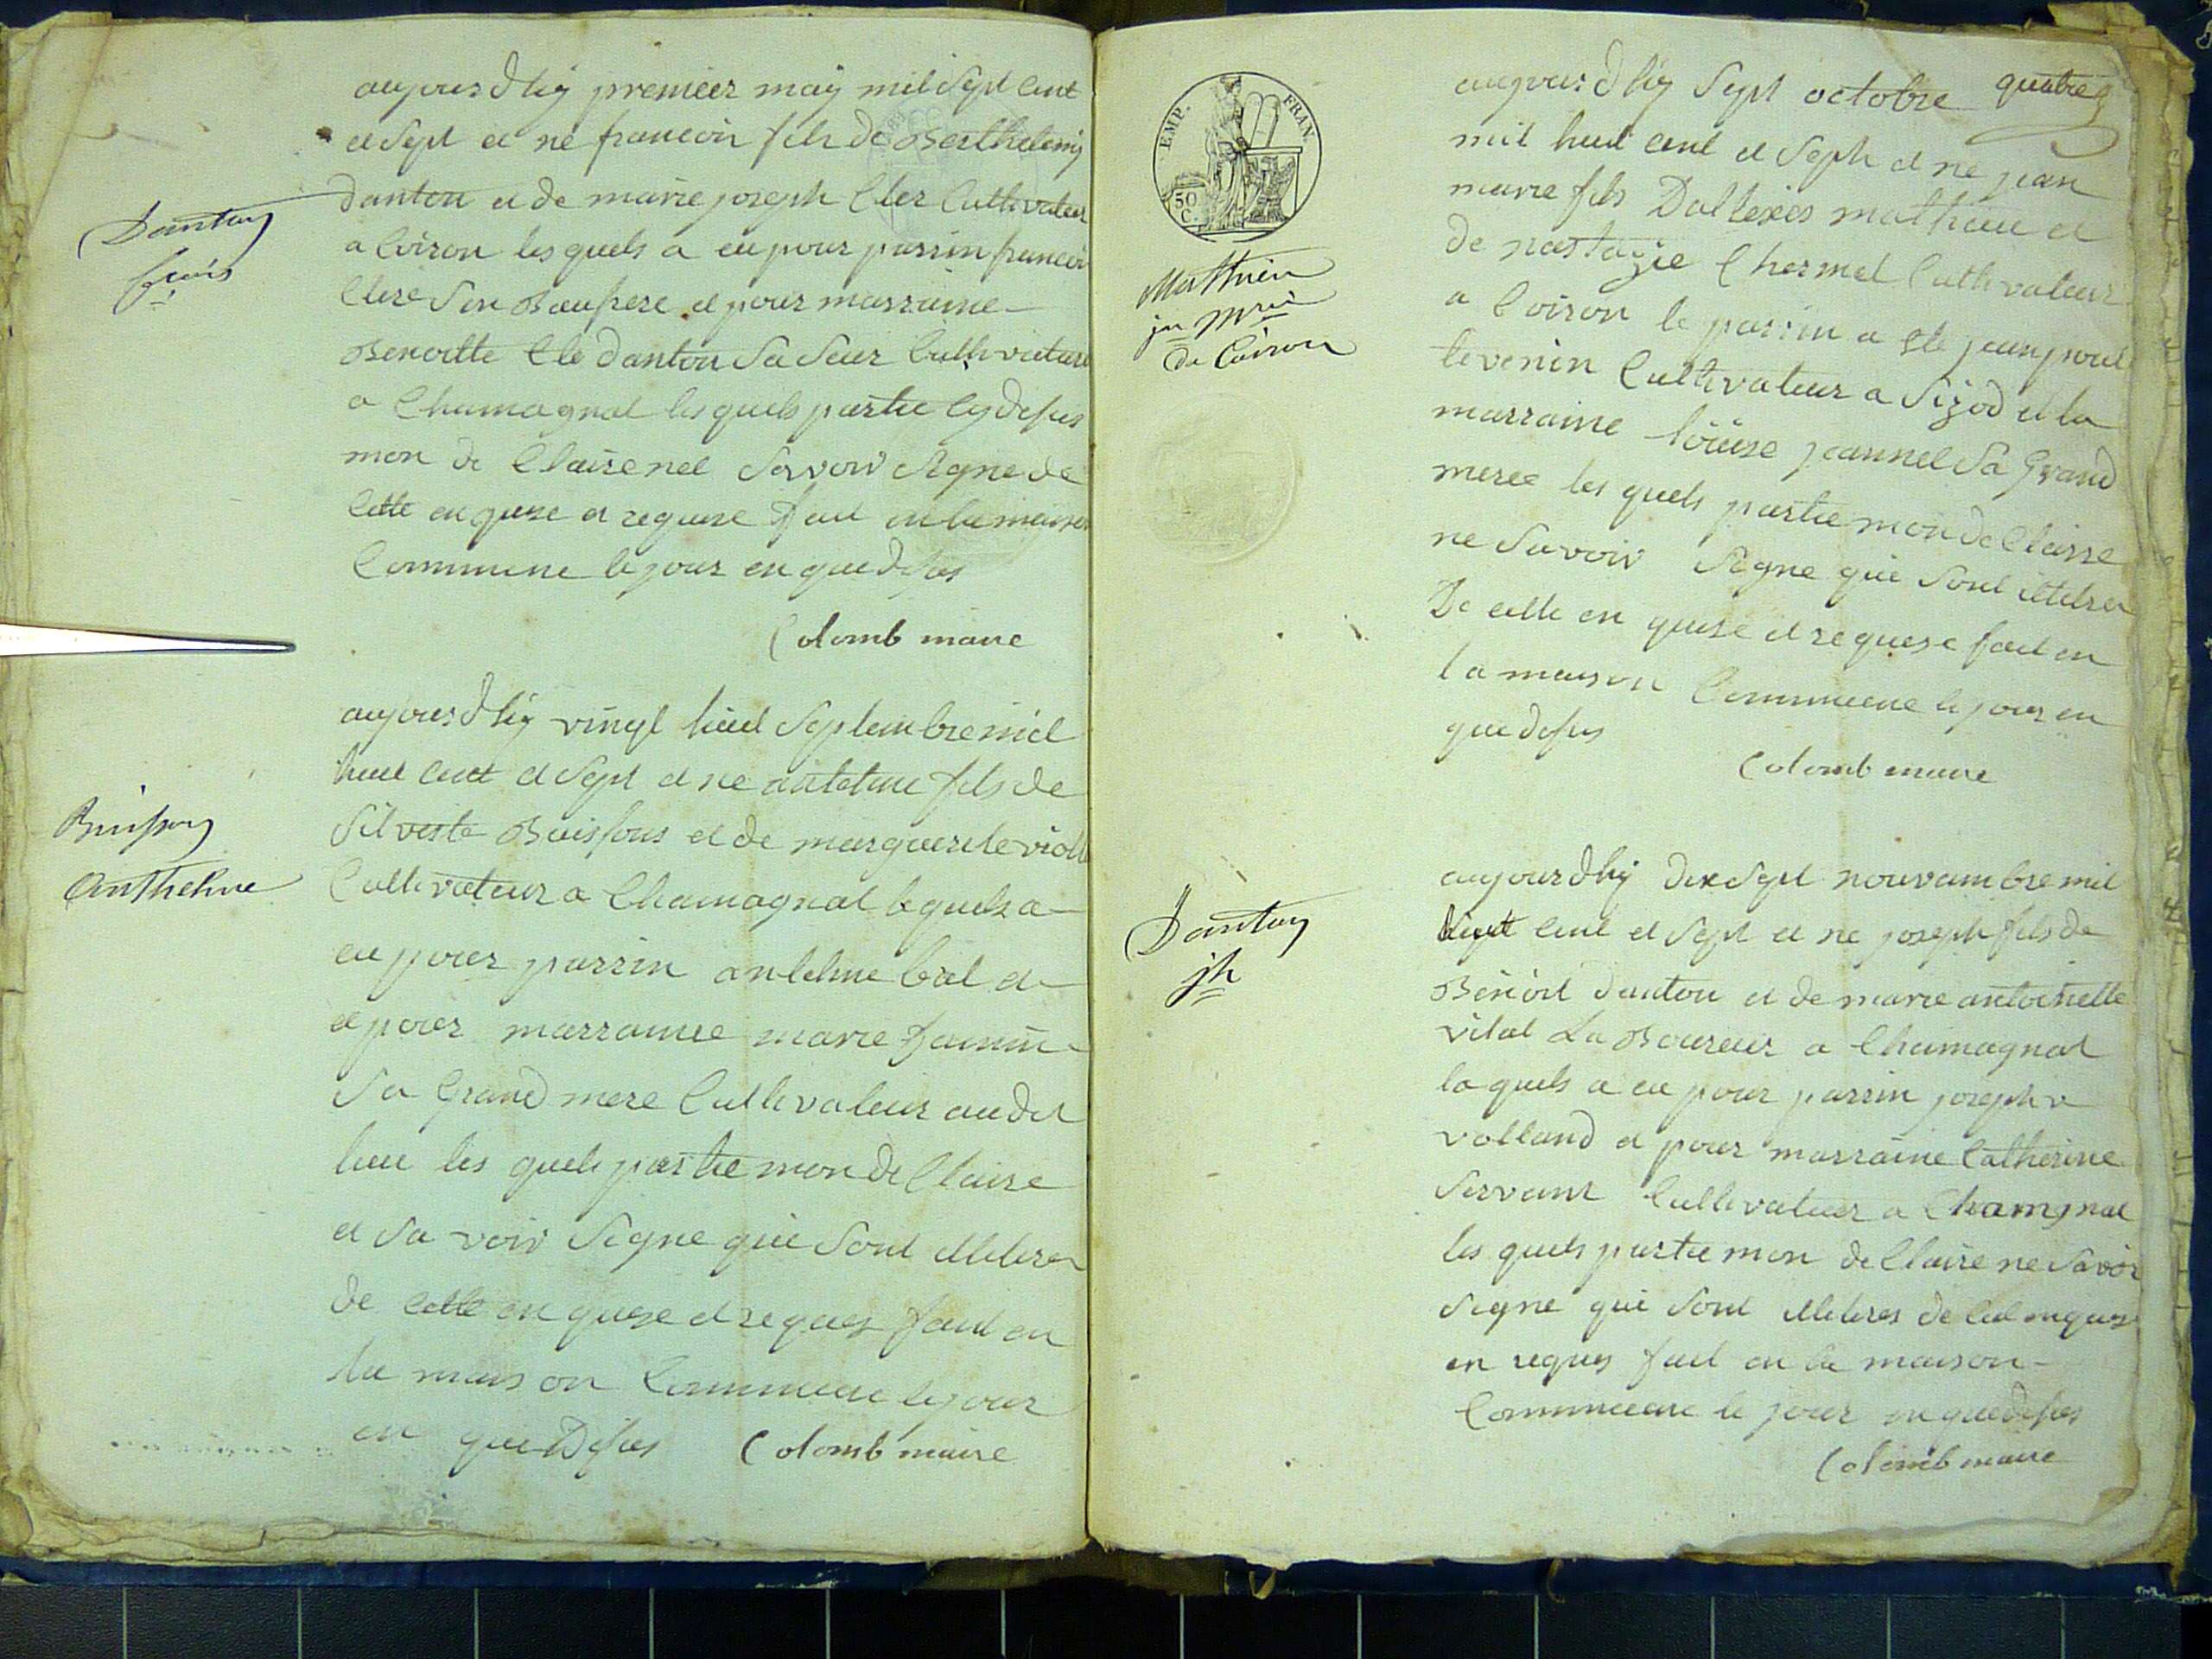 aujourdhÿ premiér maÿ mil Sept Cent
et Sept et né francoir fils de Berthelemÿ
danton et de marie joseph Cler Cultivateur
a Coiron les quels a eu pour parrin francoi
Clere Son Baufrere et pour marraine
Benoitte Cle danton Sa Seur Cultivature
a Chamagnat les quels partie cy desus
mon de Claire nee Savoir Signe de
Cette en quese et requise fait en la maison
Commune le jour en que desus
Colomb maire
Dantony
fcois
aujourdhÿ vingt huit Septembre mil
huit cent et Sept et ne antelme fils de
Silveste Buissons et de marguerite violl
Cultivateur a Chamagnat le quels a
eu pour parrin antelme bral et
et pour marraine marie
Sa Grand mere Cultivateur au dit
lieu les quels partie mon de Claire
et Sa voir Signe que Sont illitere
de Cette en quese et reques fait en
la mais on Commune le jour
en que Desus Colomb maire
Buisson
Anthelme
quatre
aujourdhÿ Sept octobre
mil huit cent et Seph et ne jean
marie fils Dallexies mathieu et
de nastazie Chermel Cultivateur
a Coiron le parrin a ete jean poul
tevenin Cultivateur a Sizod et la
marraine loüise jeannel Sa Grand
meree les quels partie mon de Clairre
ne Savoir Signe que Sont illitere
De cette en quese et requese fait en
la maison Commune le jour en
que desus
Colomb maire
EMP. FRAN.
50 C.
Matthieu
jn Mrie
de Coiron
aujourdhÿ dix Sept nouvambre mil
huit cent et Sept et ne joseph fils de
Benoit danton et de marie antoinette
vital La Boureur a Chamagnat
la quels a eu pour parrin joseph v
volland et pour marraine Catherine
Servant Cultivateur a Chamgnat
les quels partie mon de Claire ne Savoir
Signe que Sont illiteres de Cet enques
en reques fait en la maison
Commune le jour en que desus
Colomb maire
Dantony
jh